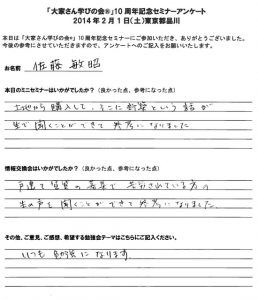 「大家さん学びの会®」10周年記念セミナーアンケート
2014年2月1日(土)東京都品川
本日は「大家さん学びの会®」10周年記念セミナーにご参加いただき、ありがとうございました。
今後の参考にさせていただきますので、アンケートへのご記入をお願いいたします。
お名前 佐藤 敏昭
本日のミニセミナーはいかがでしたか?(良かった点、参考になった点)
土地から購入して、そこに新築という話が
生で聞くことができて 参考になりました
情報交換会はいかがでしたか?(良かった点、参考になった点)
戸建て賃貸の されている方の
生の声を聞くことができて 参考になりました
その他、ご意見、ご感想、希望する勉強会テーマはこちらにご記入ください。
いつも 勉強になります。